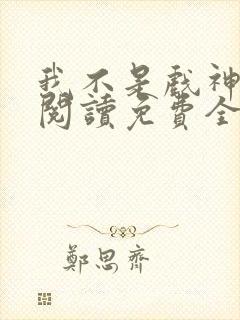 我不是戲神
閱讀免費全
鄭思齊